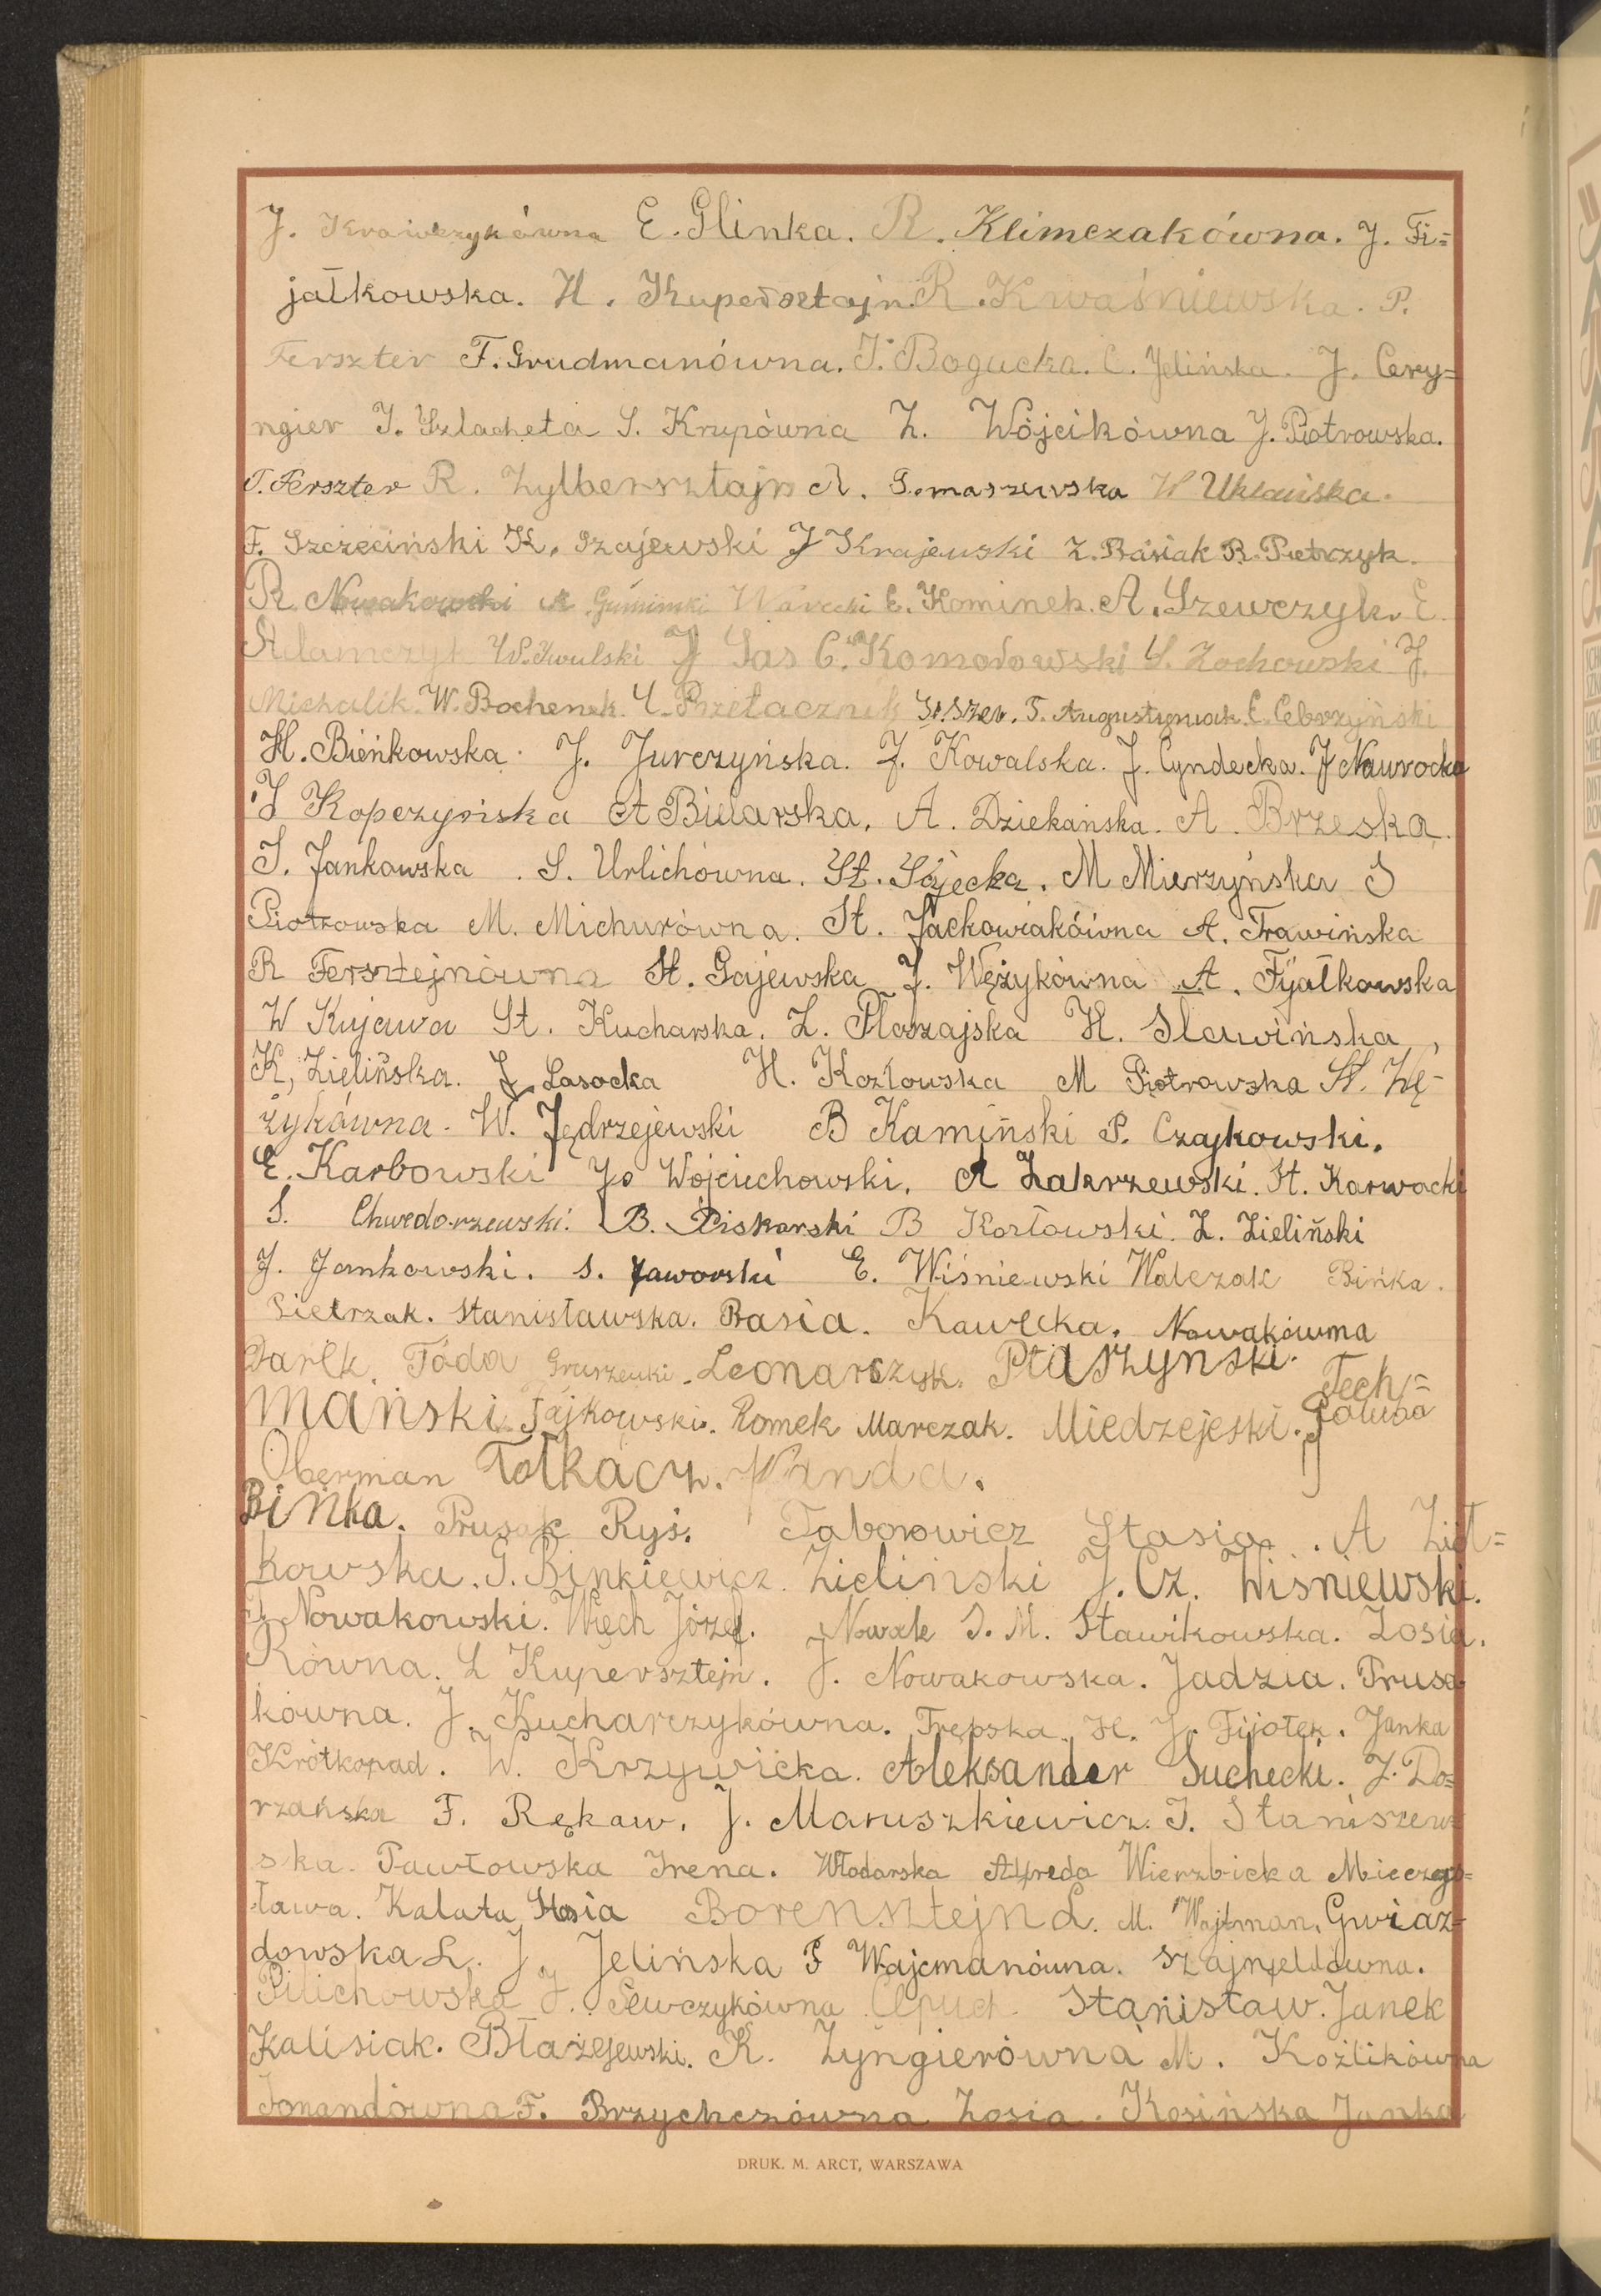 J. Krawczykówna E. Glinka. R. Klimczakówna. J. Fi=
jałkowska. H. Kupersztajn. R. Kwaśniewska. P.
Ferszter F. Grudmanówna. I. Bogucka. C. Jelińska. J. Cery=
ngier I. Szlacheta S. Krupówna Z. Wójcikówna J. Piotrowska.
T. Ferszter R. Zylbersztajn A. Tomaszewska W Uklańska.
F. Szczeciński K. Szajewski J Krajewski Z. Basiak R. Pietrzyk.
R. Nowakowski Warecki E. Kominek. A. Szewczyk. E.
Adamczyk W. Iwulski J Sas C. Komorowski S. Żochowski J.
Michalik. W. Bochenek. Przełacznik St. Szer. T. Augustyniak. C. Cebrzyński
H. Bieńkowska. J. Jurczyńska. J. Kowalska. J. Cyndecka. J Nawrocka
J Kopczyńska A Bielarska. A. Dziekańska. A. Brzeska.
I. Jankowska. S. Urlichówna. St. Sójecka. M Mierzyńska S
Piotrowska M. Michurówna. St. Jackowiakówna A. Trawińska
R Fersztejnówna St. Gajewska J. Wężykówna A. Fijałkowska
W Kujawa St. Kucharska. Z. Płoszajska H. Sławińska,
K, Zielińska. J. Lasocka H. Kozłowska M Piotrowska St. Wę-
żykówna. W. Jędrzejewski B Kamiński P. Czajkowski.
E. Karbowski Jo Wojciechowski. A Zakrzewski. St. Karwacki
S. Chwedorzewski. B. Piskorski B Kozłowski. Z. Zieliński
J. Jankowski. S. Jaworski E. Wiśniewski Walczak Bińka.
Pietrzak. Stanisławska. Basia. Kawecka. Nowakówna
Darek. Tóda Gruszecki. Leonarczyk. Ptaszynski. Tech=
mański. Fajkowski. Romek Marczak. Miedzejeski.
Oberman Tołkacz. Wanda.
Bińka. Prusak Ryś. Taborowicz Stasia. A Ziół=
kowska. S. Binkiewicz. Zielinski J. Cz. Wiśniewski.
F. Nowakowski. Więch Józef. Nowak S. M. Stawikowska. Zosia.
Równa. L Kupersztejn. J. Nowakowska. Jadzia. Prusa
kówna. J. Kucharczykówna. Trępska. H. J. Fijołek. Janka
Krótkopad. W. Krzywicka. Aleksander Suchecki. J. Do=
rzańska F. Rękaw. J. Maruszkiewicz. I. Staniszew=
ska. Pawłowska Irena. Włodarska Alfreda Wierzbicka Mieczys=
ława. Kalata Stasia Borensztejn L. M. Wajtman. Gwiaz=
dowska L. J. Jelińska F Wajcmanówna. Szajnfeldówna.
Pilichowska J. Sewczykówna Cipuch. Stanisław. Janek
Kalisiak. Błażejewski. K. Zyngierówna M. Koźlikówna
Jomandówna F. Brzychczówna Zosia. Kosińska Janka
DRUK. M. ARCT, WARSZAWA